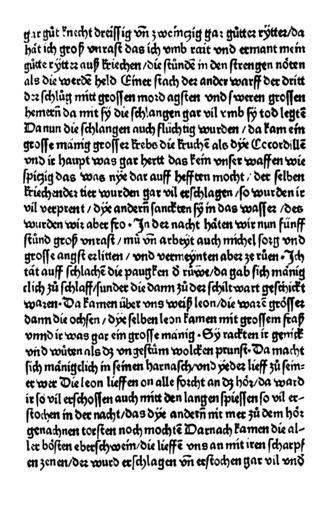 gar gůt knecht dreissig vn̄ zweinczig gar gůtter rytter/da
hät ich groß vnrast das ich vmb rait vnd ermant mein
gůte rytter auß kriechen/die stůnde in den strengen nötten
als die werdē held Einer stach der ander warff der dritt
der schlůg mitt grossen mord agsten vnd sweren grossen
hemern da mit sy die schlangen gar vil vmb sy tod legtē
Da nun die schlangen auch flüchtig wurden/da kam ein
grosse mänig grosser krebs die truhē als dye Cocordillē
vnd ir haupt was gar hertt das kein vnser waffen wie
spiczig das was nye dar auff hefften mocht/der selben
kriechender tier wurden gar vil erschlagen/so wurden ir
vil verprent/dye andern sanckten sy in das wasser/des
wurden wir aber fro · In der nacht häten wir nun fünff
stünd groß vnrast/mů vn̄ arbeyt auch michel sorg vnd
grosse angst erlitten/vnd vermeynten aber ze růen · Ich
tät auff schlachē die paugken d růwe/da gab sich mänig
clich zů schlaff/sunder die dann zů der schiltwart geschickt
waren · Da kamen über vns weiß leon/die warē grösser
dann die ochsen/dye selben leon kamen mit grossem stras̈
vnnd ir was gar ein grosse mänig · Sy rackten ir genick
vnd wůten als dz vngestüm wolcken prunst · Da macht
sich mänigclich in seinen harnasch/vnd yeder lieff zů sein⸗
er wer Die leon lieffen on alle forcht an dz hör/da ward
ir so vil erschossen auch mitt den langen spiessen so vil er⸗
stochen in der nacht/das dye andern nit mer zů dem hör
genachnen torsten noch mochtē Darnach kamen die al⸗
ler bösten eberschwein/die lieffē vns an mit iren scharpf
en zenen/der wurd erschlagen vn̄ erstochen gar vil vnd